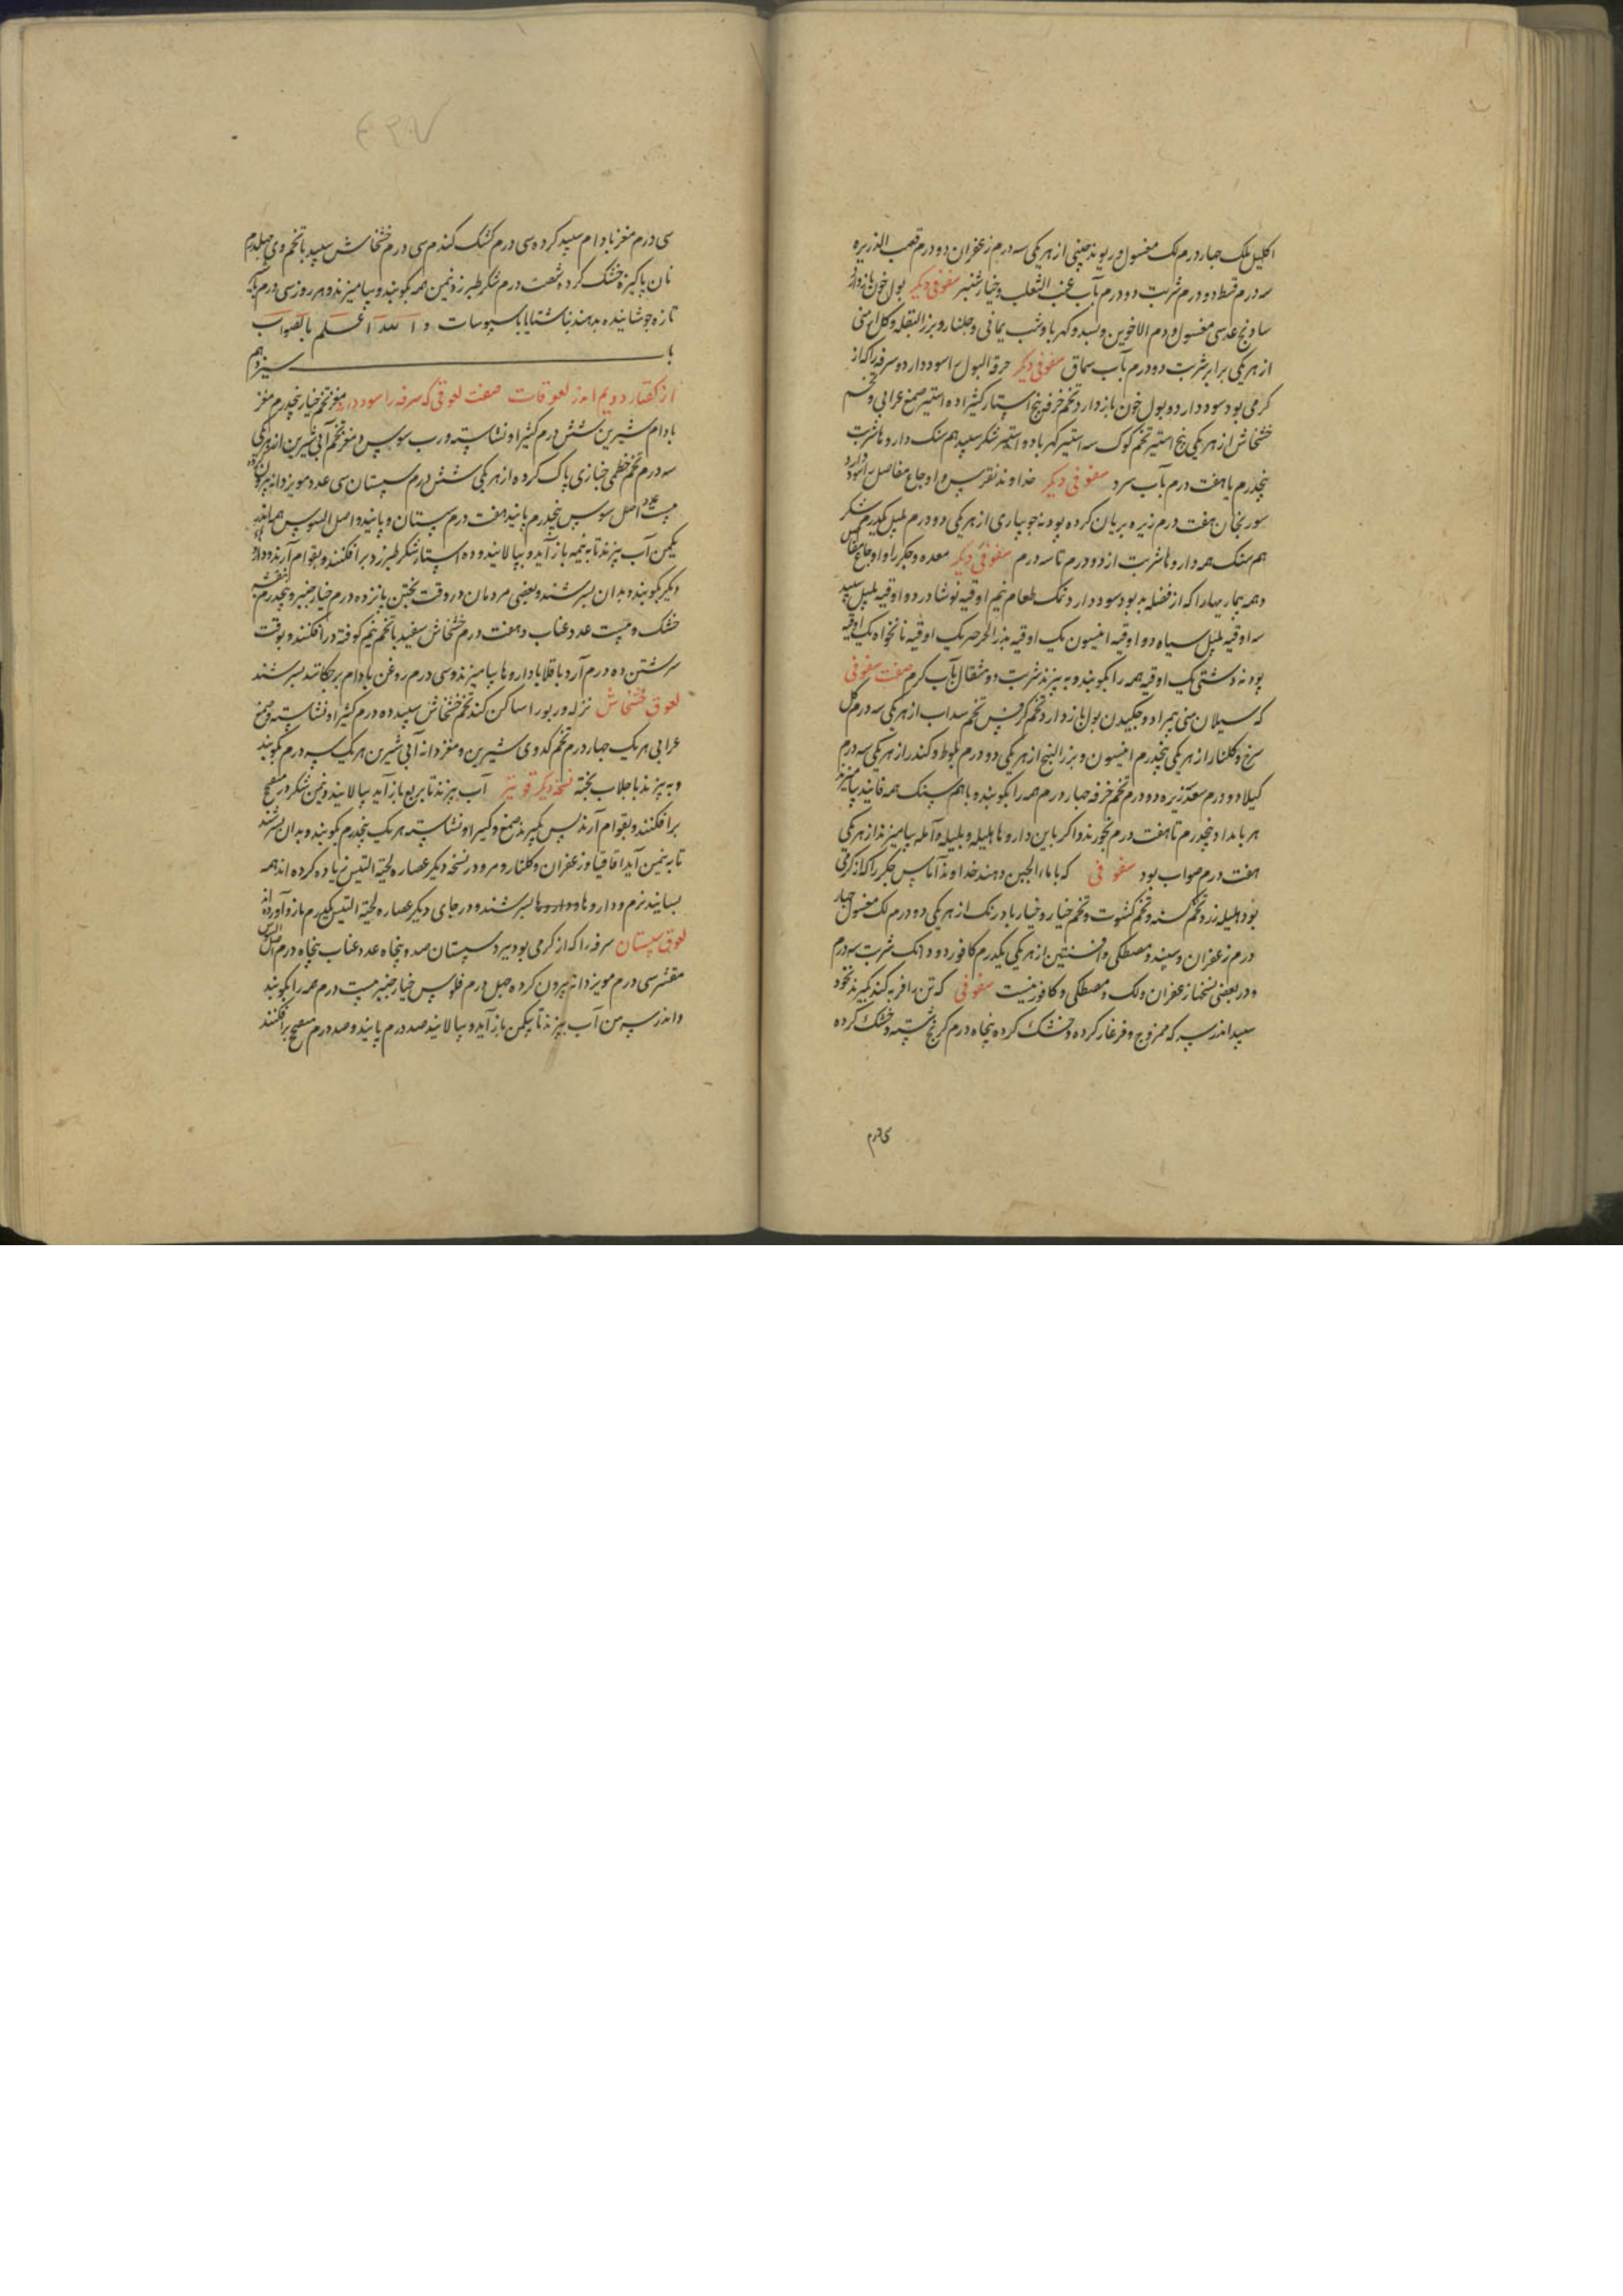 اکلیل ملک چهار درم لک مغسول و ریوند چینی از هر یکی سه درم زعفران دو درم قصب الذریره
سه درم قسط دو درم شربت دو درم بآب عنب الثعلب و خیارشنبر سفوفی دیکر بول خون بازدارد
سادنج عدسی مغسول و دم الاخوین و بسد و کهربا و شب یمانی و جلنار و بزر البقله و کل ارمنی
از هر یکی برابر شربت دو درم بآب سماق سفوفی دیکر حرقه البول را سود دارد و سرفه را که از
کرمی بود سود دارد و بول خون بازدارد تخم خرفه پنج استار کثیرا ده استیر صمغ عرابی و تخم
خشخاش از هر یکی پنج استیر تخم کوک سه استیر کهربا دو استیر شکر سپید هم سنک داروها شربت
پنجدرم یا هفت درم بآب سرد سفوفی دیکر خداوند نقرس و اوجاع مفاصل را سود دارد
سورنجان هفت درم زیره بریان کرده پودنه جویباری از هر یکی دو درم پلپل یکدرم شکر
هم سنک همه داروها شربت از دو درم تا سه درم سفوفی دیکر معده و جکر را و اوجاع مفاصل
و همه بیماریهارا که از فضله بد بود سود دارد نمک طعام نیم اوقیه نوشادر دو اوقیه پلپل سپید
سه اوقیه پلپل سیاه دو اوقیه انیسون یک اوقیه بذر الجرجیر یک اوقیه نانخواه یک اوقیه
پودنه دشتی یک اوقیه همه را بکوبند و به بیزند شربت دو مثقال بآب کرم صفت سفوفی
که سیلان منی ببرد و چکیدن بول بازدارد تخم کرفس تخم سداب از هر یکی سه درم کل
سرخ و کلنار از هر یکی پنجدرم انیسون و بزر البنج از هر یکی دو درم بلوط و کندر از هر یکی سه درم
کیلا دو درم سعد زیره دو درم تخم خرفه چهار درم همه را بکوبند و با هم سنک همه فانید بیامیزند
هر بامداد پنجدرم تا هفت درم بخورند و اکر باین داروها هلیله و بلیله و آمله بیامیزند از هر یکی
هفت درم صواب بود سفوفی که با ماء الجبن دهند خداوند آماس جکر را که از کرمی
بود هلیله زرد و تخم کسنه و تخم کشوث و تخم خیار و خیار بادرنک از هر یکی دو درم لک مغسول چهار
درم زعفران و سپند و مصطکی و افسنتین از هر یکی یکدرم کافور دو دانک شربت سه درم
و در بعضی نسخها زعفران و لک و مصطکی و کافور نیست سفوفی که تن را فربه کند بکیرند نخود
سپید اندر سرکه ممزوج و فرغار کرده و خشک کرده پنجاه درم کرنج شسته و خشک کرده
سی درم
سی درم مغز بادام سپید کرده سی درم کشک کندم سی درم خشخاش سپید با تخم وی چهلدرم
نان پاکیزه خشک کرده شصت درم شکر طبرزد نیمن همه بکوبند و بیامیزند و هر روز سی درم بشیر
تازه جوشانیده بدهند ناشتا یا با سبوسات و الله اعلم بالصواب
باب سیزدهم
از کفتار دویم اندر لعوقات صفت لعوقی که سرفه را سود دارد مغز تخم خیار پنجدرم مغز
بادام شیرین شش درم کثیرا و نشاسته و رب سوس و مغز تخم آبی شیرین از هر یکی
سه درم تخم خطمی خبازی پاک کرده از هر یکی شش درم سپستان سی عدد مویز دانه بیرون کرده
بیست عدد اصل سوس پنجدرم پانید هفت درم سپستان و پانید و اصل السوس همه اندر
یکمن آب بپزند تا به نیمه بازآید و بپالایند و ده استار شکر طبرزد برافکنند و بقوام آرند و داروها
دیکر بکوبند و بدان بسرشند و بعضی مردمان در وقت پختن پانزده درم خیارچنبر و پنجدرم بنفشه
خشک و بیست عدد عناب و هفت درم خشخاش سفید با تخم نیم کوفته درافکنند و بوقت
سرشتن ده درم آرد باقلا با داروها بیامیزند و سی درم روغن بادام برچکانند بسرشند
لعوق خشخاش نزله و ربو را ساکن کند تخم خشخاش سپید ده درم کثیرا و نشاسته و صمغ
عرابی هر یک چهار درم تخم کدوی شیرین و مغز دانه آبی شیرین هر یک سه درم بکوبند
و به پزند با جلاب پخته نسخه دیکر قوی تر آب بپزند تا بربع بازآید بپالایند و نیمن شکر و میفختج
برافکنند و بقوام آرند پس بکیرند صمغ و کثیرا و نشاسته هر یک پنجدرم بکوبند و بدان بسرشند
تا به نیمن آید اقاقیا و زعفران و کلنار و مر و در نسخه دیکر عصاره لحیة التیس زیاده کرده اند همه
بسایند نرم و داروها بسرشند و در جای دیکر عصاره لحیة التیس یکدرم مازو آورده اند
لعوق سپستان سرفه را که از کرمی بود ببرد سپستان صد و پنجاه عدد عناب پنجاه درم اصل السوس
مقشر سی درم مویز دانه بیرون کرده چهل درم فلوس خیارچنبر بیست درم همه را بکوبند
و اندر سه من آب بپزند تا بیکمن بازآید و بپالایند صد درم پانید و صد درم میفختج برافکنند